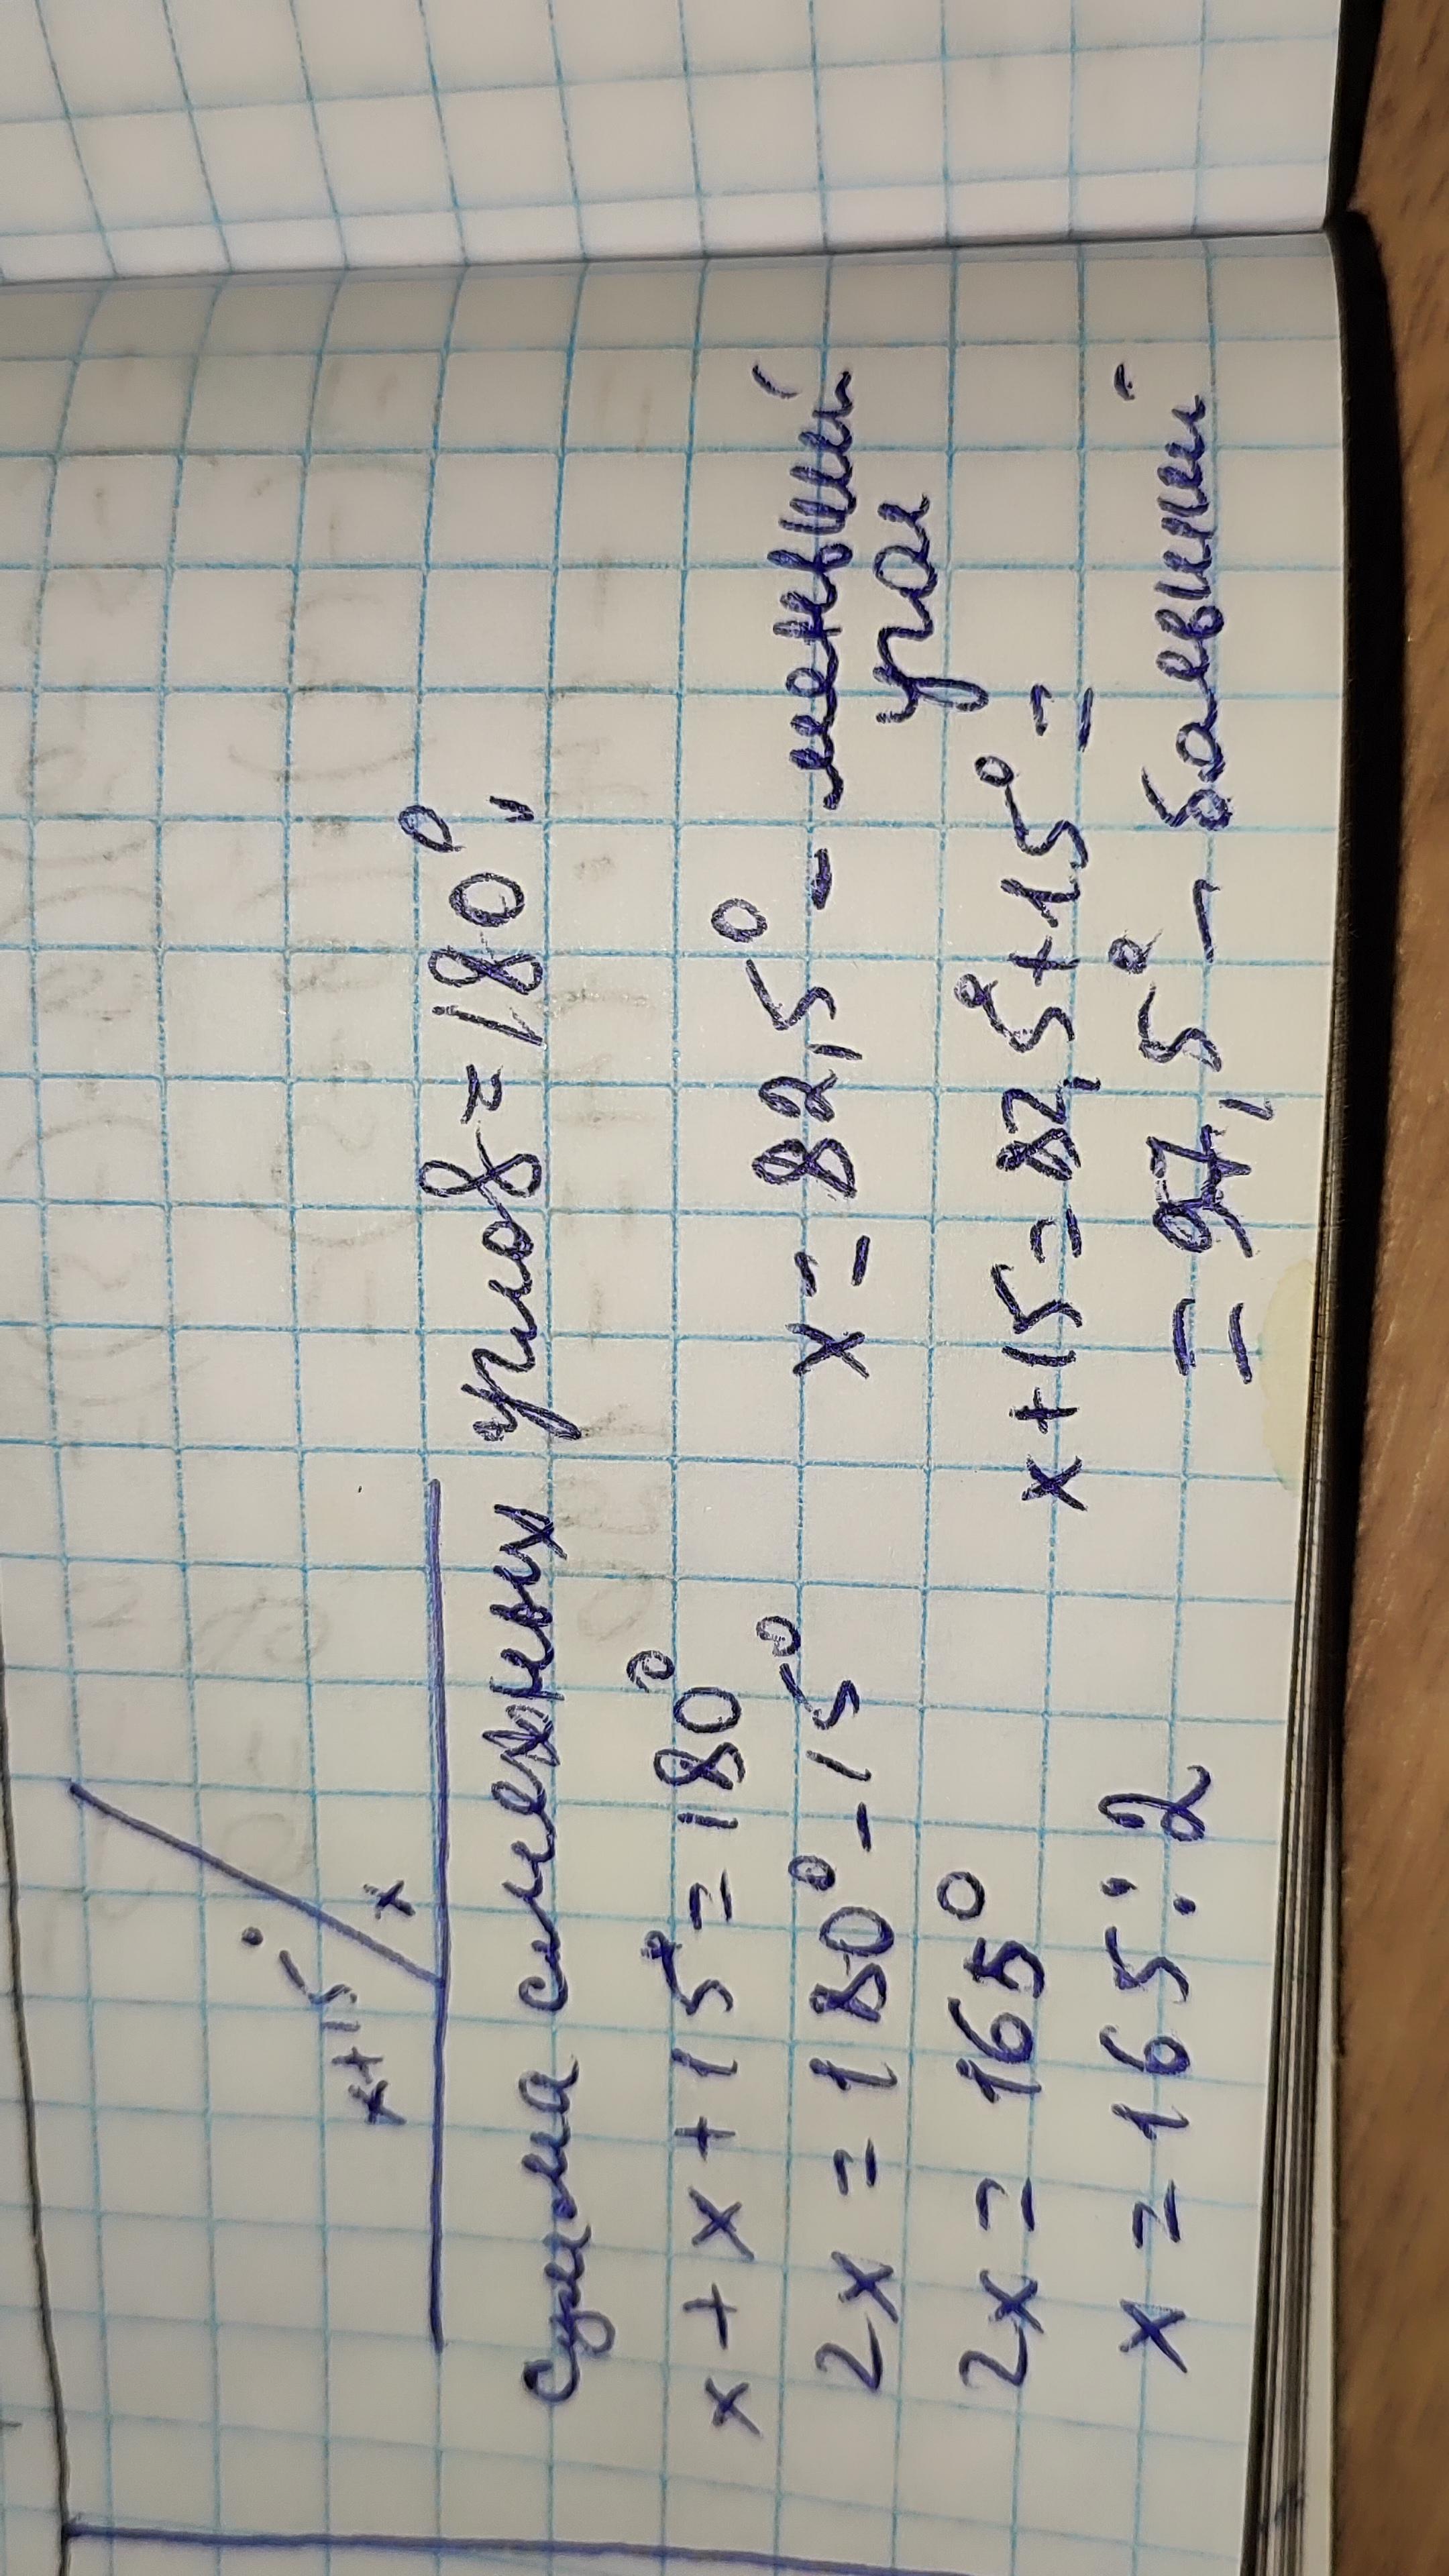 x+15° x
сумма смежных углов = 180°,
x + x + 15° = 180°
2x = 180° - 15°
2x = 165°
x = 165 : 2
x = 82,5° - меньший
угол
x + 15 = 82,5° + 15° =
= 97,5° - больший